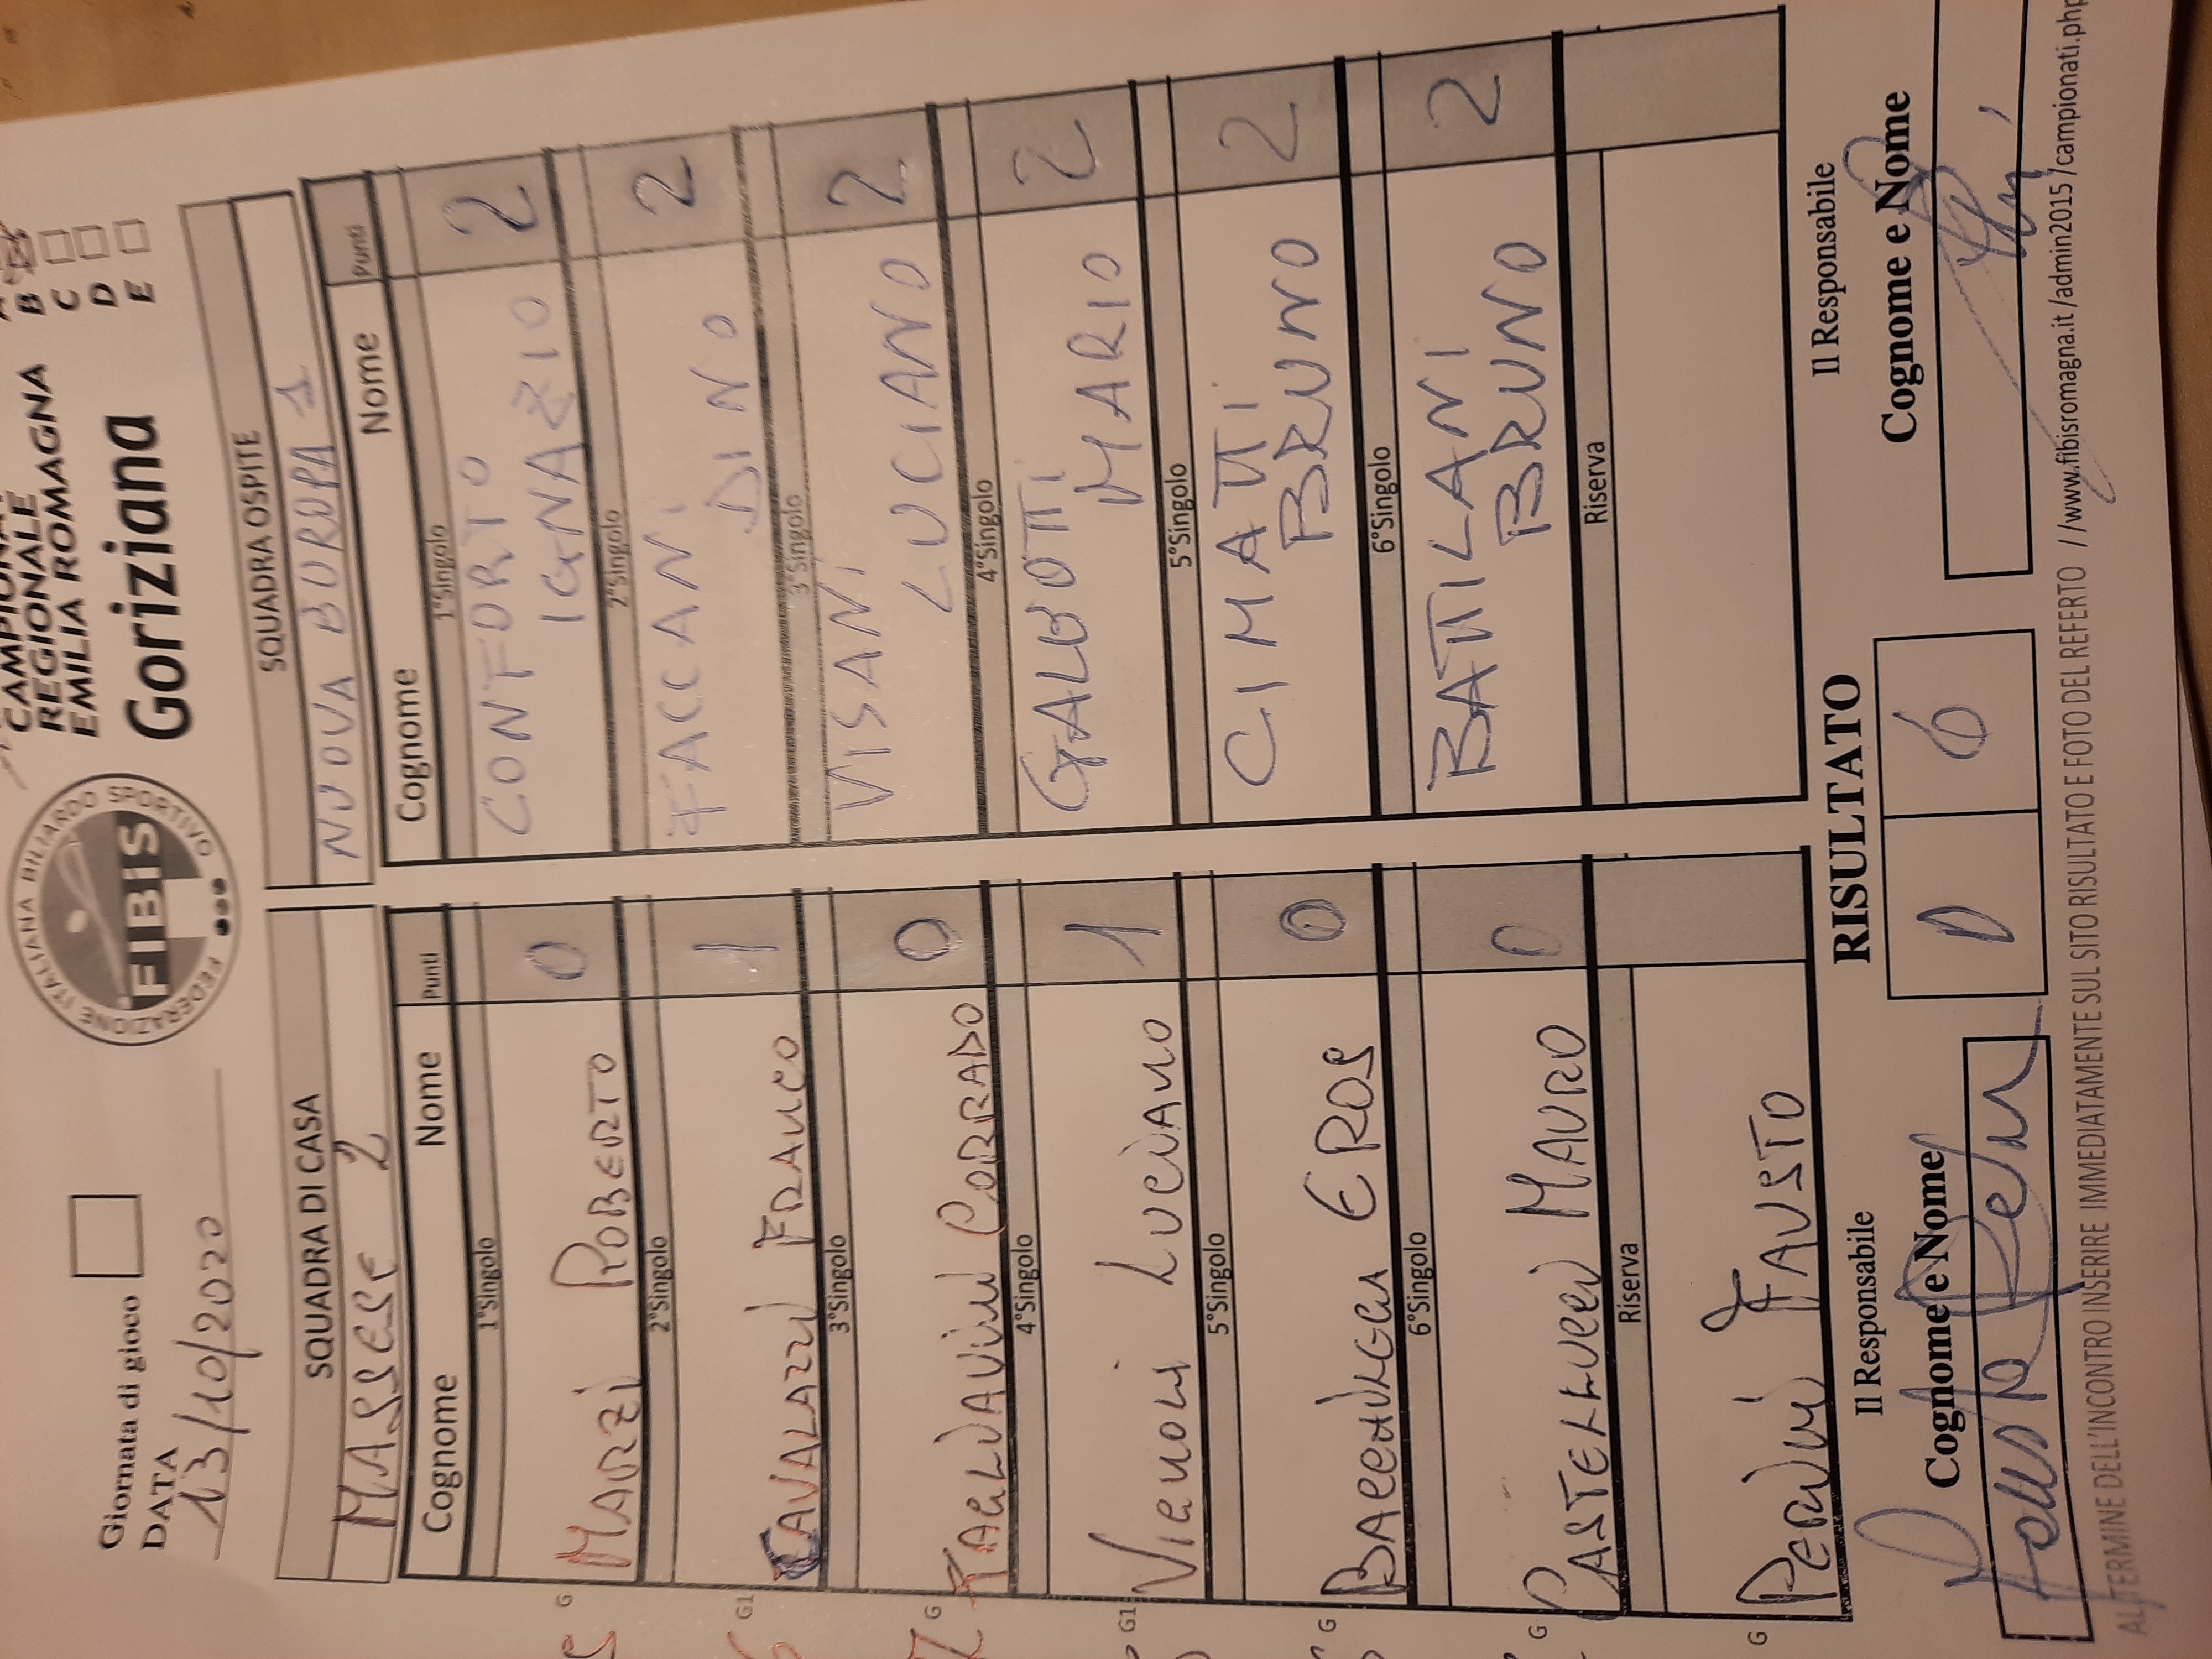 Giornata di gioco
DATA
13/10/2020
FEDERAZIONE ITALIANA BILIARDO SPORTIVO
FIBiS
REGIONALE
EMILIA ROMAGNA
Goriziana
B
C
D
E
SQUADRA DI CASA
MASSESE 2
Cognome Nome Punti
1°Singolo
G MARZI ROBERTO 0
2°Singolo
G1 CAVALAZZI FRANCO 1
3°Singolo
G TAGLIAVINI CORRADO 0
4°Singolo
G1 VIGNOLI LUCIANO 1
5°Singolo
G EROS 0
6°Singolo
G CASTELLUCCI MAURO 0
Riserva
G PERINI FAUSTO
SQUADRA OSPITE
NUOVA EUROPA 1
Cognome Nome Punti
1°Singolo
CONFORTO
IGNAZIO 2
2°Singolo
FACCANI
DINO 2
3°Singolo
VISANI
LUCIANO 2
4°Singolo
GALEOTTI
MARIO 2
5°Singolo
CIMATTI
BRUNO 2
6°Singolo
BATTILANI
BRUNO 2
Riserva
Il Responsabile
Cognome e Nome
RISULTATO
0 6
Il Responsabile
Cognome e Nome
AL TERMINE DELL'INCONTRO INSERIRE IMMEDIATAMENTE SUL SITO RISULTATO E FOTO DEL REFERTO //www.fibisromagna.it/admin2015/campionati.php